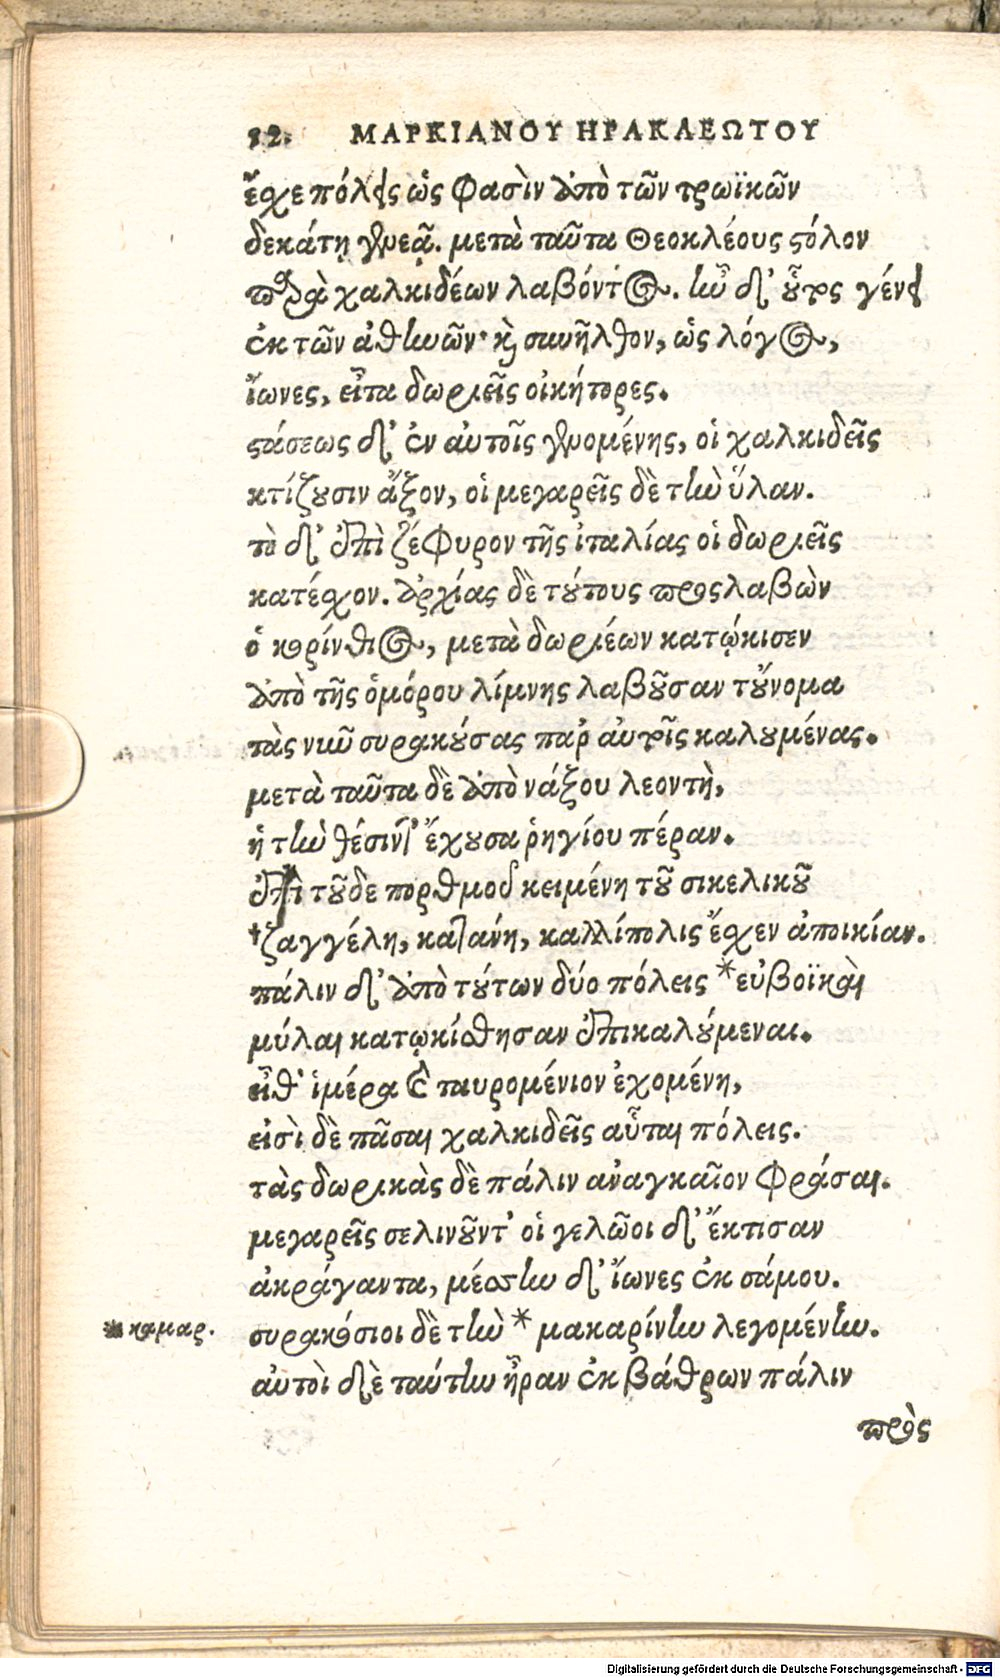 12. ΜΑΡΚΙΑΝΟΥ ΗΡΑΚΛΕΩΤΟΥ
ἔσχε πόλεις ὡς φασὶν ἀπὸ τῶν τρωϊκῶν
δεκάτῃ γενεᾷ. μετὰ ταῦτα Θεοκλέους ϛόλον
παρὰ χαλκιδέων λαβόντος. ἦν δ' οὗτος γένει
ἐκ τῶν ἀθηνῶν· καὶ συνῆλθον, ὡς λόγος,
ἴωνες, εἶτα δωριεῖς οἰκήτορες.
ϛάσεως δ' ἐν αὐτοῖς γενομένης, οἱ χαλκιδεῖς
κτίζουσιν ἄξον, οἱ μεγαρεῖς δὲ τὴν ὕλαν.
τὸ δ' ἐπὶ ζέφυρον τῆς ἰταλίας οἱ δωριεῖς
κατέσχον. ἀρχίας δὲ τούτους προςλαβὼν
ὁ κορίνθιος, μετὰ δωριέων κατῴκισεν
ἀπὸ τῆς ὁμόρου λίμνης λαβοῦσαν τοὔνομα
τὰς νῦν συρακούσας παρ' αὐτοῖς καλουμένας.
μετὰ ταῦτα δὲ ἀπὸ νάξου λεοντὴ,
ἡ τὴν θέσιν τ' ἔχουσα ῥηγίου πέραν.
ἐπὶ τοῦδε πορθμοῦ κειμένη τοῦ σικελικοῦ
†ζαγγέλη, κατάνη, καλλίπολις ἔσχεν ἀποικίαν.
πάλιν δ' ἀπὸ τούτων δύο πόλεις *εὐβοϊκαὶ
μύλαι κατῳκίσθησαν ἐπικαλούμεναι.
εἶθ' ἱμέρα καὶ ταυρομένιον ἐχομένη,
εἰσὶ δὲ πᾶσαι χαλκιδεῖς αὗται πόλεις.
τὰς δωρικὰς δὲ πάλιν ἀναγκαῖον φράσαι.
μεγαρεῖς σελινοῦντ' οἱ γελῶοι δ' ἔκτισαν
ἀκράγαντα, μέσσην δ' ἴωνες ἐκ σάμου.
*καμαρ. συρακόσιοι δὲ τὴν * μακαρίνην λεγομένην.
αὐτοὶ δὲ ταύτην ἦραν ἐκ βάθρων πάλιν
πρὸς
Digitalisierung gefördert durch die Deutsche Forschungsgemeinschaft - DFG